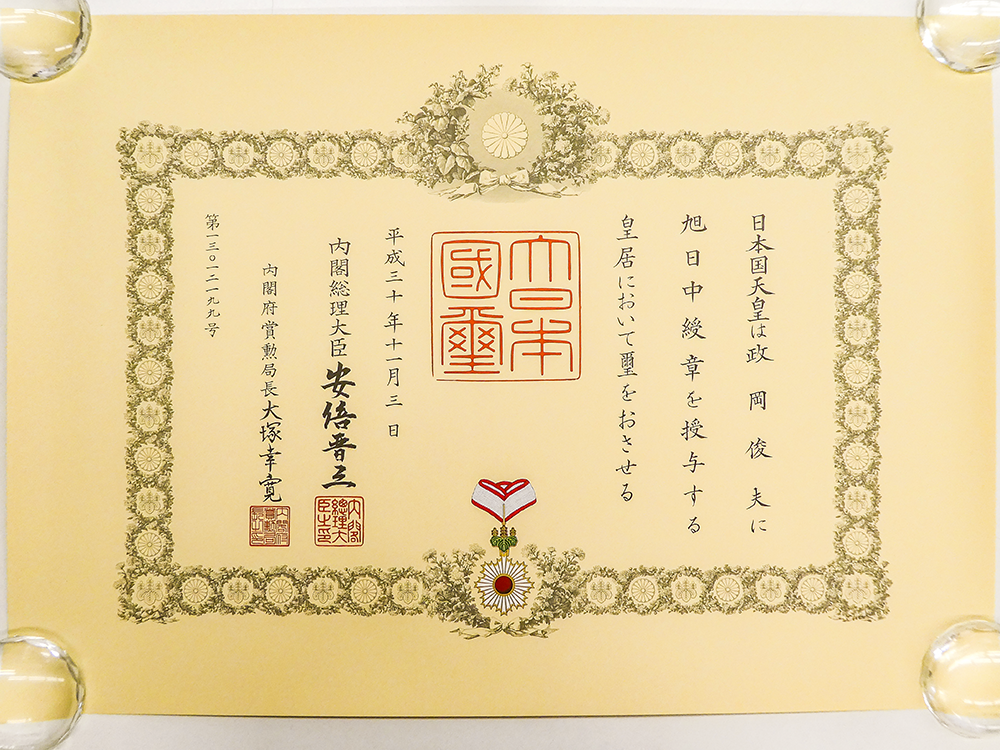 日本国天皇は政岡俊夫に
旭日中綬章を授与する
皇居において璽をおさせる
大日本
國璽
平成三十年十一月三日
内閣総理大臣 安倍晋三
内閣総理大臣之印
内閣府賞勲局長 大塚幸寛
第一三〇一二一九九号